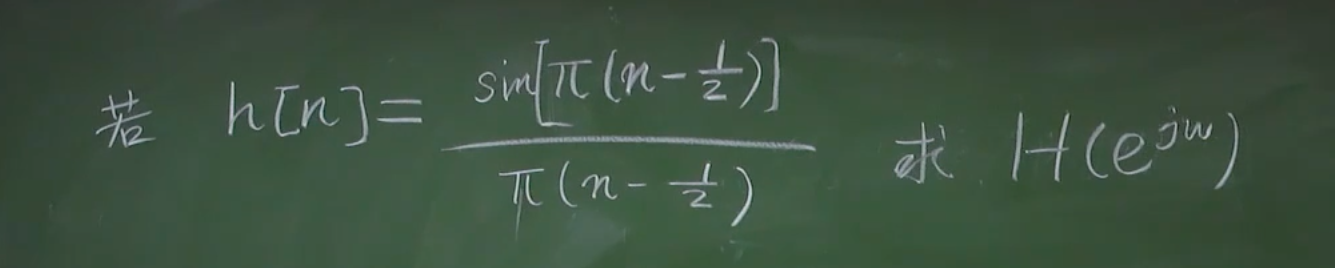 若 h[n] = \frac{sin[π(n-\frac{1}{2})]}{π(n-\frac{1}{2})} 求 H(e^{jw})